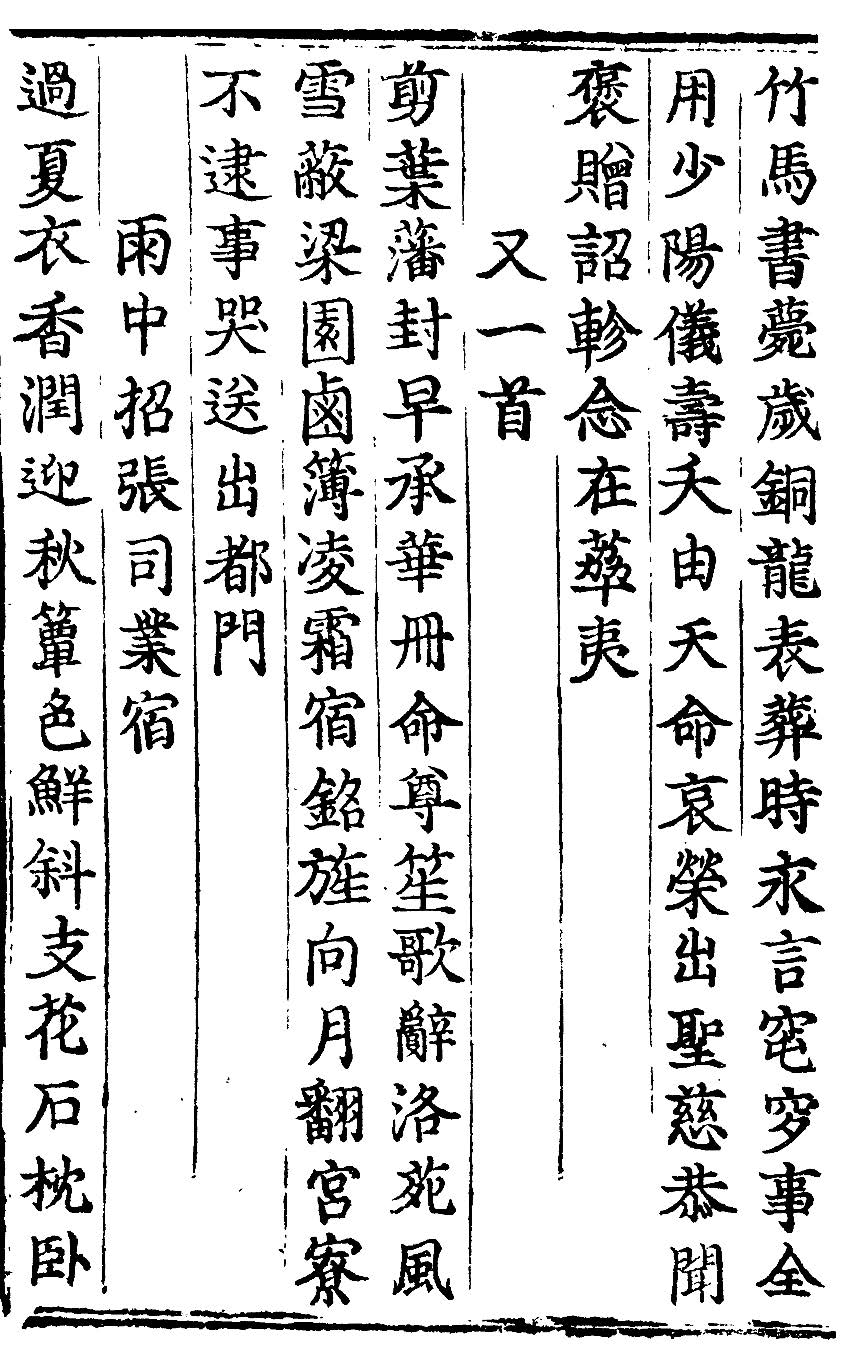 竹馬書薨歲銅龍表葬時永言窀穸事全
用少陽儀壽夭由天命哀榮出聖慈恭聞
褒贈詔軫念在蕚夷
又一首
剪葉藩封早承華冊命尊笙歌辭洛苑風
雪蔽梁園鹵簿凌霜宿銘旌向月翻宮寮
不逮事哭送出都門
雨中招張司業宿
過夏衣香潤迎秋簟色鮮斜支花石枕卧